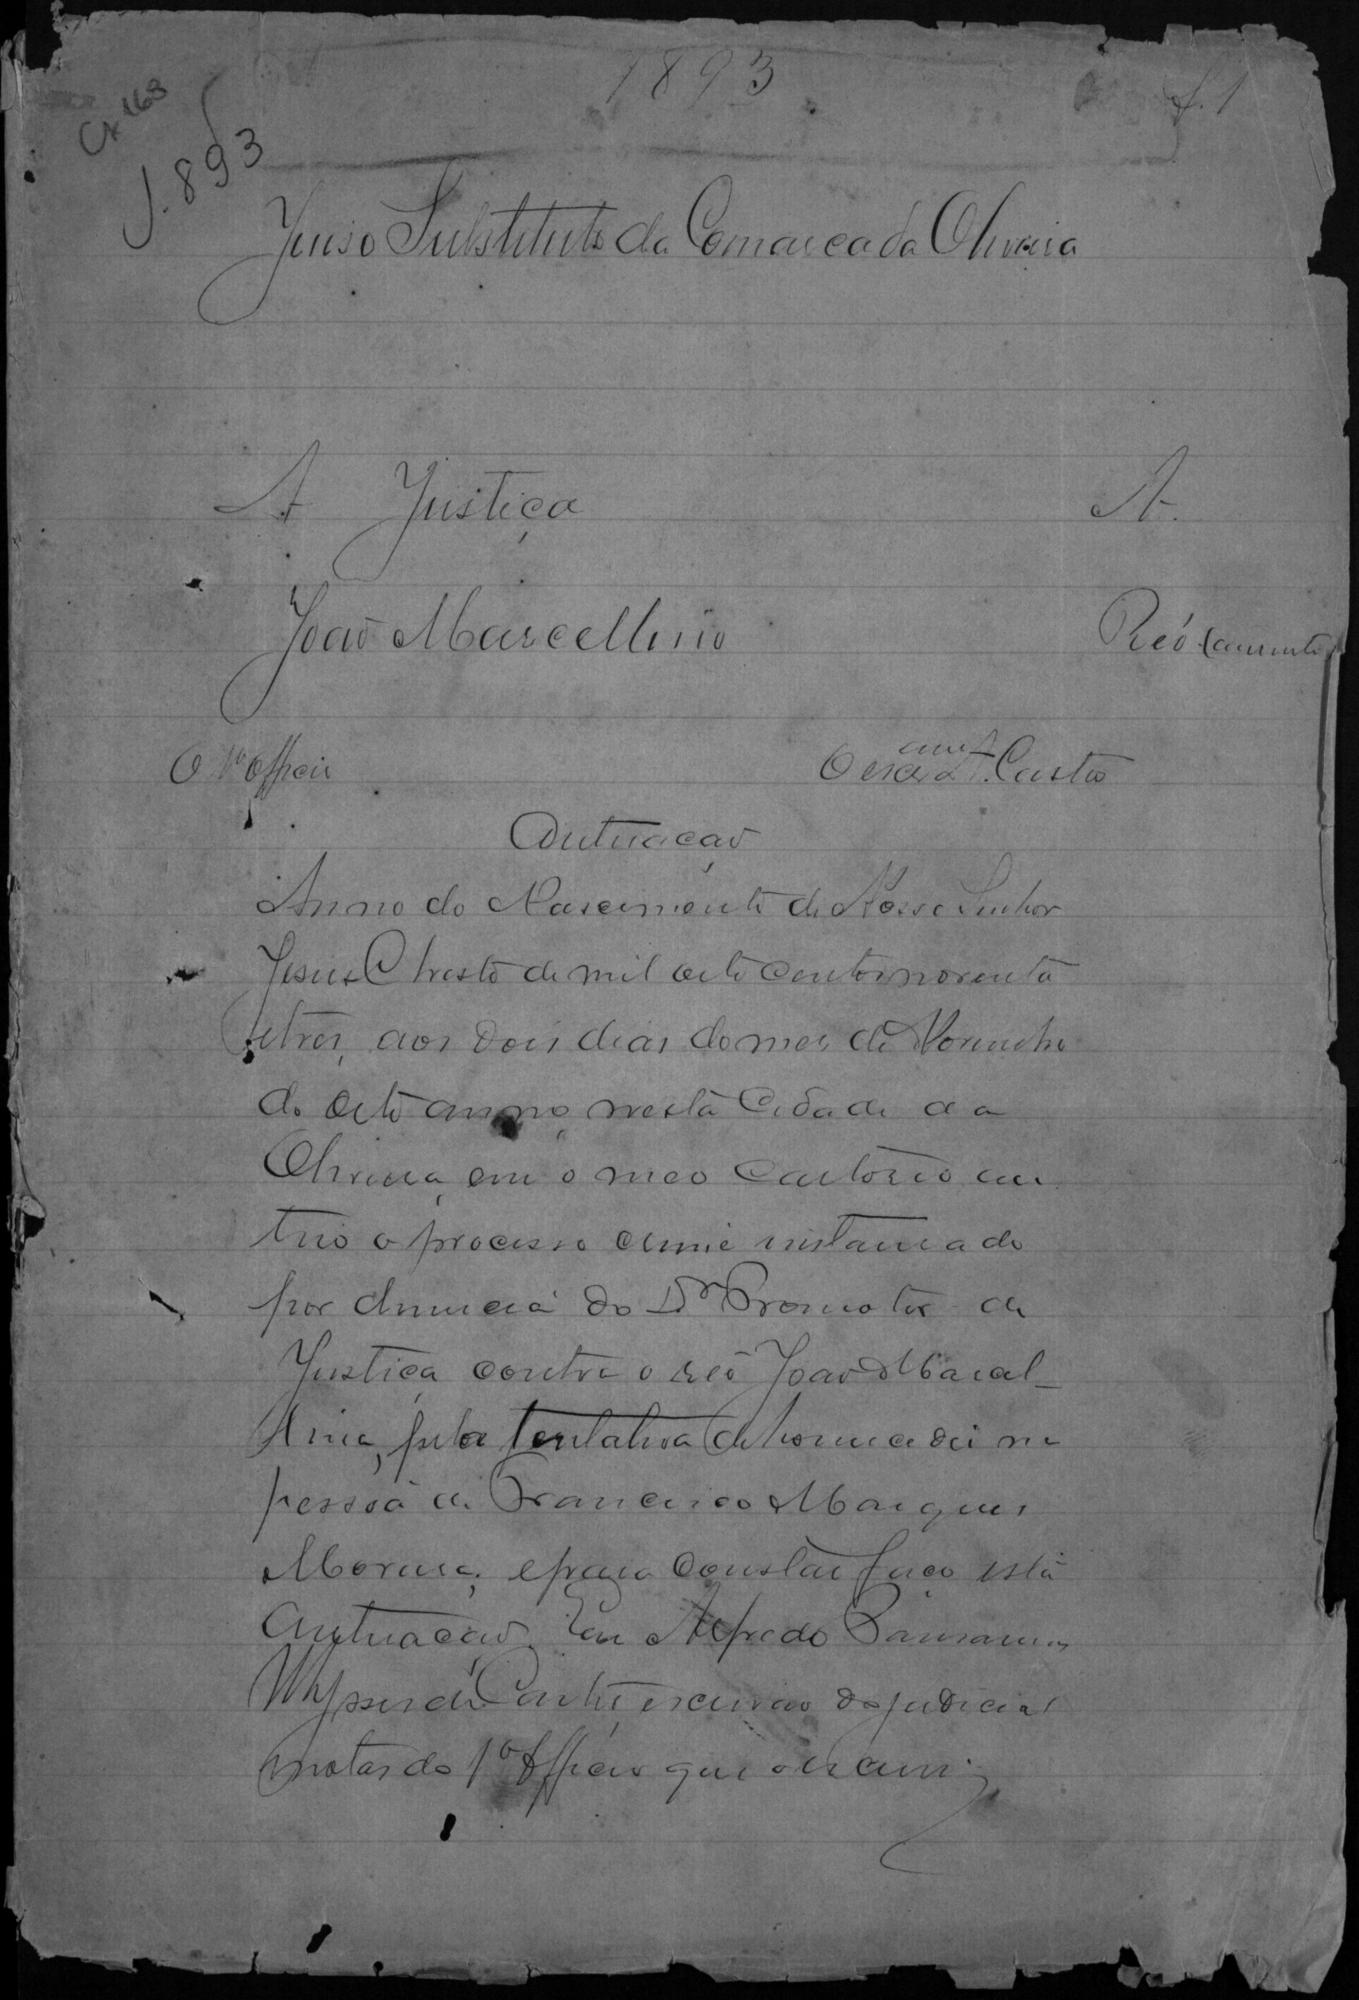 1893
f. 1
Cx 168
J. 893
Juiso Substituto da Comarca da Oliveira
A Justiça A.
João Marcellino Réo
O 1º Officio O escrivam Castro
Autuação
Anno do Nascimento de Nosso Senhor
Jesus Christo de mil oito centos noventa
etres, aos dois dias do mes de Novembro
do dito anno, nesta Cidade da
Oliveira, em o meo Cartorio au
tuo o processo crime instaurado
por denuncia do Dr Promotor da
Justiça contra o réo João Marcel-
lino, pela tentativa de homecidio na
pessoa de Francisco Marques
Moreira, e para constar faço esta
Autuação. Eu Alfredo
Ulysses de Castro, escrivão do judicial
notas do 1º Officio que o escrevi